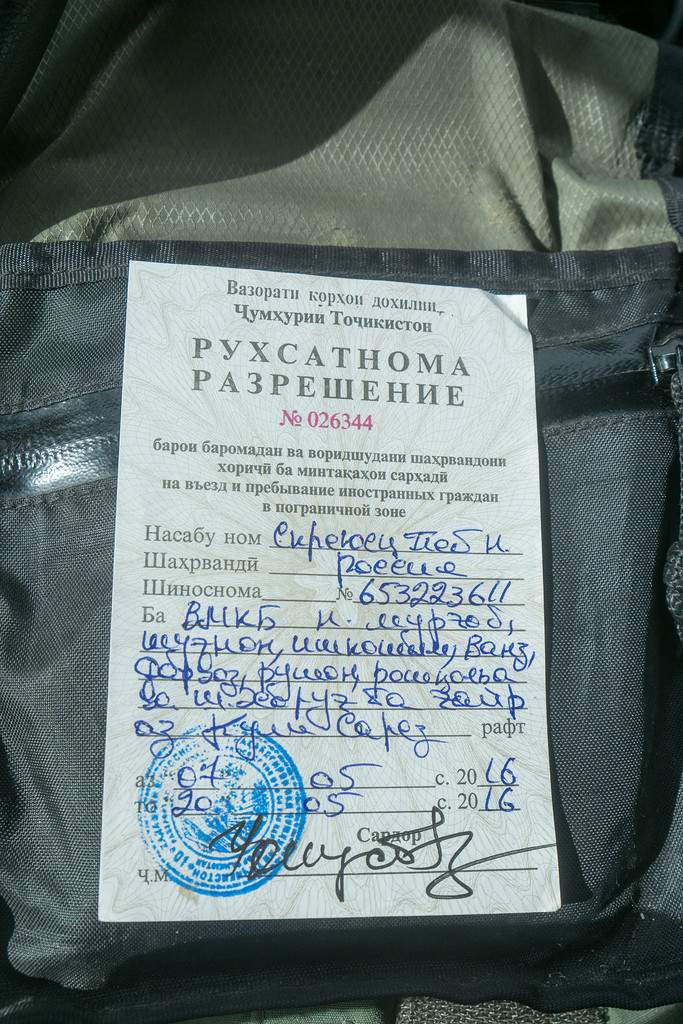 Вазорати корҳои дохилии
Ҷумҳурии Тоҷикистон
РУХСАТНОМА
РАЗРЕШЕНИЕ
№ 026344
барои баромадан ва воридшудани шаҳрвандони
хориҷӣ ба минтақаҳои сарҳадӣ
на въезд и пребывание иностранных граждан
в пограничной зоне
Насабу ном
Шаҳрвандӣ Россия
Шиноснома № 653223611
Ба ВМКБ н. Мурғоб,
Шуғнон, Ишкошим, Ванҷ,
Дарвоз, Рушон, Рошқалъа
ва ш. Хоруғ ба ғайр
аз Кули Сарез рафт
аз "07" 05 с. 2016
то "20" 05 с. 2016
Сардор
Ҷ.М.